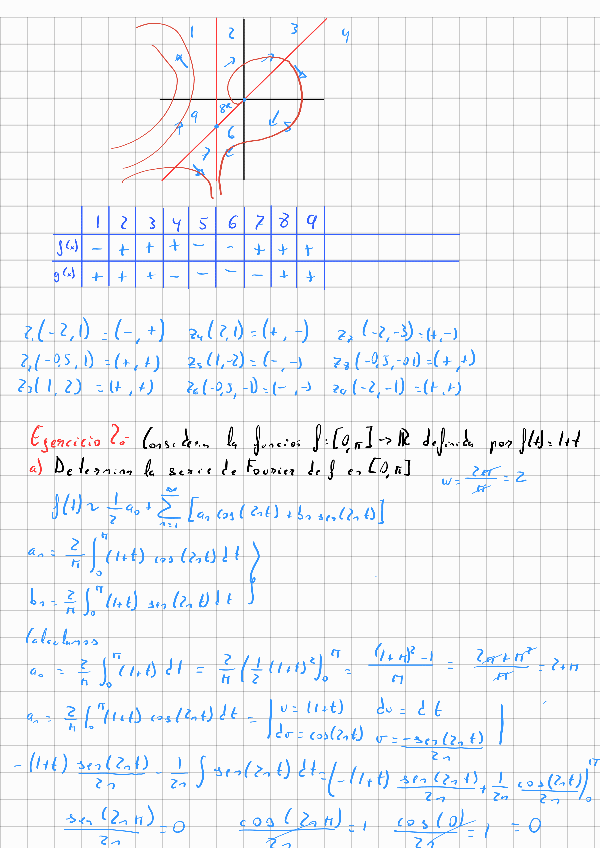 1 2 3 4
9 8 5
6
7
1 2 3 4 5 6 7 8 9
f(x) - + + + - - + + +
g(x) + + + - - - - + +
Z₁(-2,1) = (-,+) Z₄(2,1) = (+,-) Z₇(-2,-3) = (+,-)
Z₂(-0,5,1) = (+,+) Z₅(1,-2) = (-,-) Z₈(-0,5,-0,1) = (+,+)
Z₃(1,2) = (+,+) Z₆(-0,5,-1) = (-,-) Z₉(-2,-1) = (+,+)
Ejercicio 2: Considera la función f:[0,π]→ℝ definida por f(t)=1+t
a) Determina la serie de Fourier de f en [0,π]
w = 2π/π = 2
f(t) ~ 1/2 a₀ + ∑ₙ₌₁^∞ [aₙ cos(2nt) + bₙ sen(2nt)]
aₙ = 2/π ∫₀^π (1+t) cos(2nt) dt
bₙ = 2/π ∫₀^π (1+t) sen(2nt) dt
Calculamos
a₀ = 2/π ∫₀^π (1+t) dt = 2/π (1/2 (1+t)²)₀^π = ((1+π)²-1)/π = (2π+π²)/π = 2+π
aₙ = 2/π ∫₀^π (1+t) cos(2nt) dt = | u = (1+t) du = dt
dv = cos(2nt) v = -sen(2nt)/2n |
-(1+t) sen(2nt)/2n - 1/2n ∫ sen(2nt) dt = (-(1+t) sen(2nt)/2n + 1/2n cos(2nt)/2n |₀^π
sen(2nπ)/2n = 0 cos(2nπ)/2n = 1 cos(0)/2n = 1 = 0